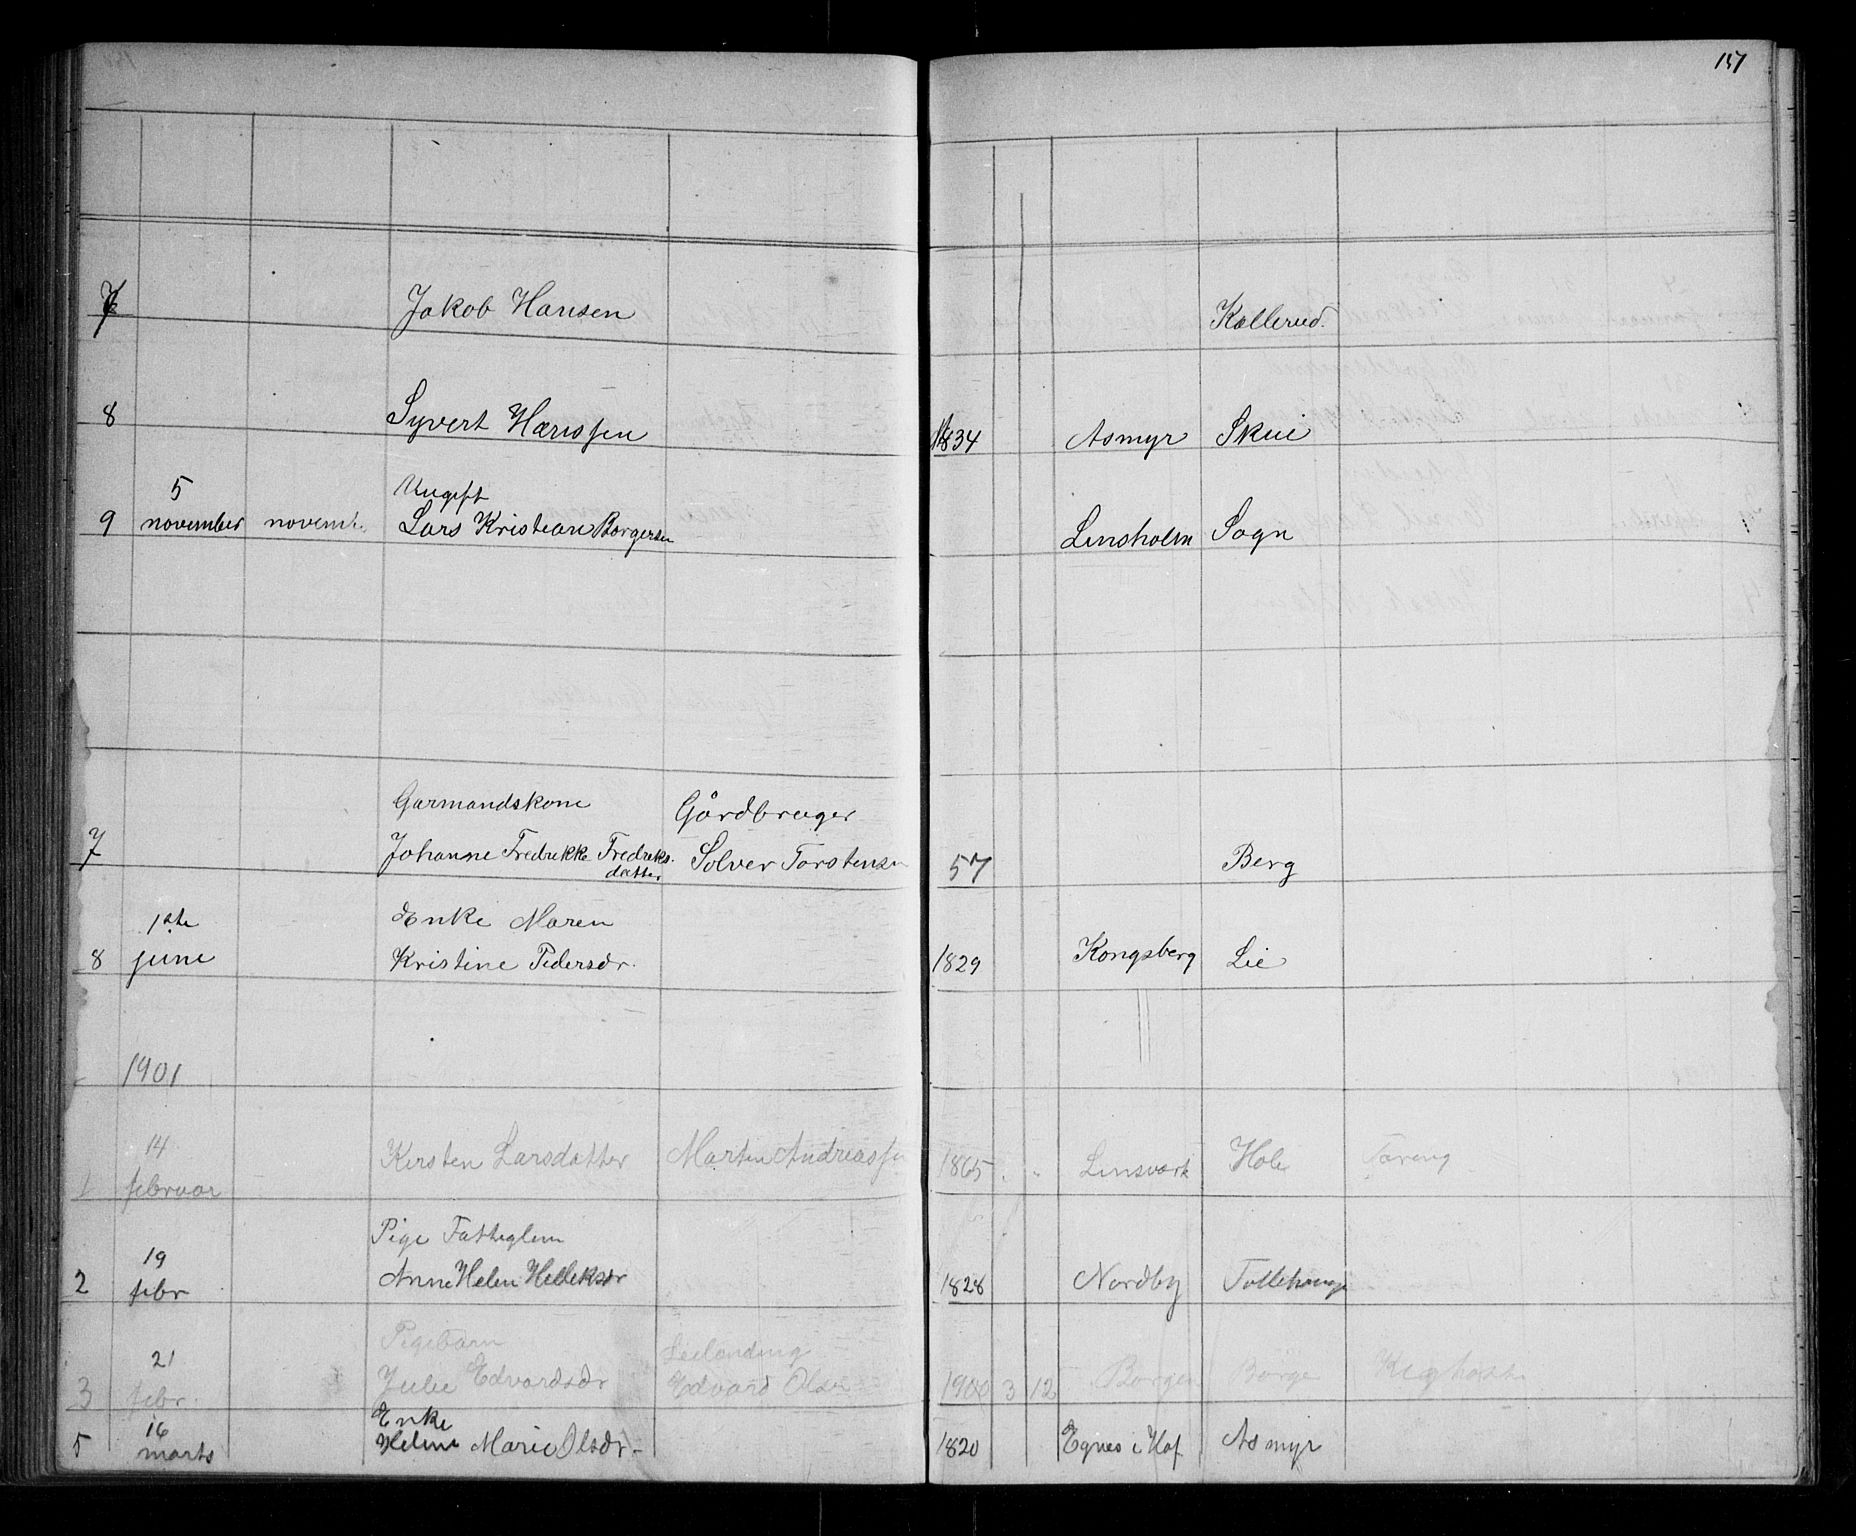 157
7 Jakob Hansen Kollerud.
8 Syvert Hansen 1834 Asmyr Skui
5 Ungift
9 november novemb. Lars Kristian Borgersen Linsholm Sogn
Garmandskone Gårdbruger
7 Johanne Fredrikke Fredriks. Solver Torstensen 57 Berg
datter
1ste Enke Maren
8 juni Kristine Pedersdr. 1829 Kongsberg Lie
1901
14 Kirsten Larsdatter Martin Andreassen 1865 Hole Tæring
1 februar
Pige
19
2 febr Anne Helen Helleksdr 1828 Nordby
Pigebarn Leilending
21
3 febr. Julie Edvardsdr Edvard Olsen 1900 3 12 Borgen Borge
Enke
16
5 marts Helene Marie Olsdr. 1820 Egnes i Hof Asmyr